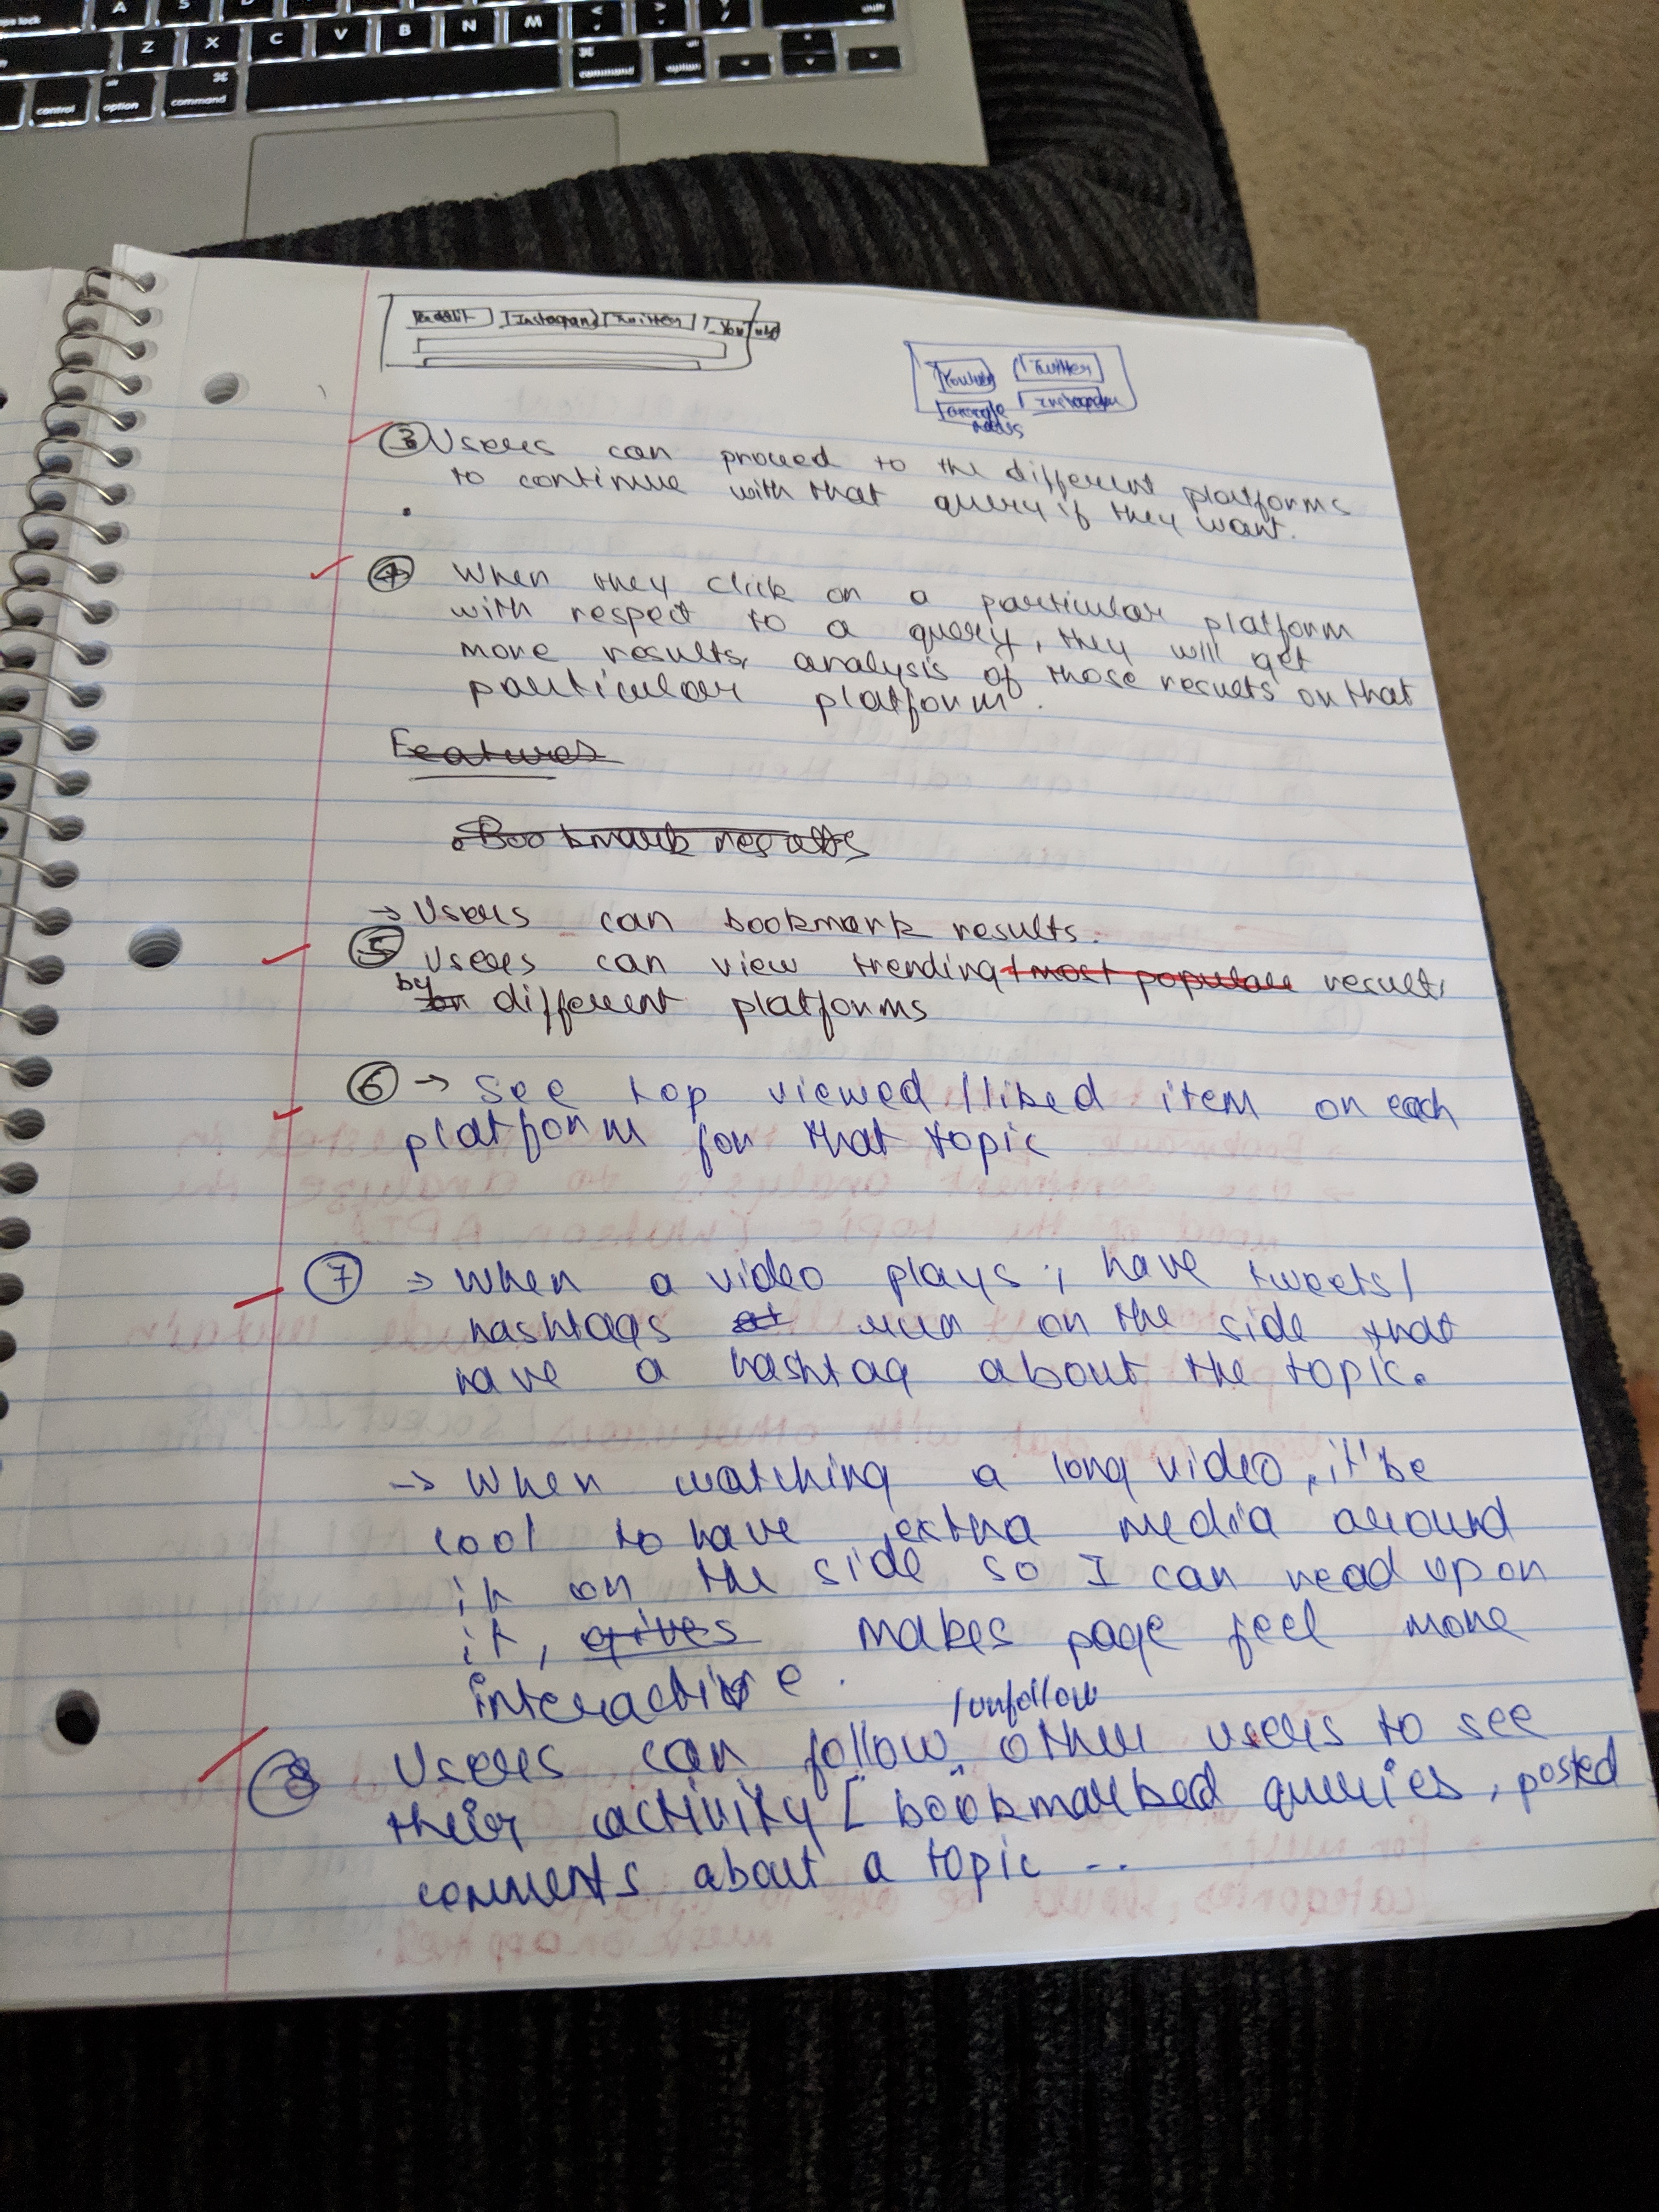 A S
Z X C V B N M < > ? shift
control option command ⌘ command option
Reddit Instagram Twitter YouTube
Twitter
Google Instagram
news
③ Users can proceed to the different platforms
to continue with that query if they want.
④ When they click on a particular platform
with respect to a query, they will get
more results, analysis of those results on that
particular platform.
Features
• Bookmark results
→ Users can bookmark results.
⑤ Users can view trending / most popular results
by on different platforms
⑥ → See top viewed / liked item on each
platform for that topic
⑦ → When a video plays, have tweets /
hashtags run on the side that
have a hashtag about the topic.
→ When watching a long video, it'be
cool to have extra media around
it on the side so I can read up on
it, gives makes page feel more
interactive.
⑧ Users can follow /unfollow other users to see
their activity [ bookmarked queries, posted
comments about a topic ..